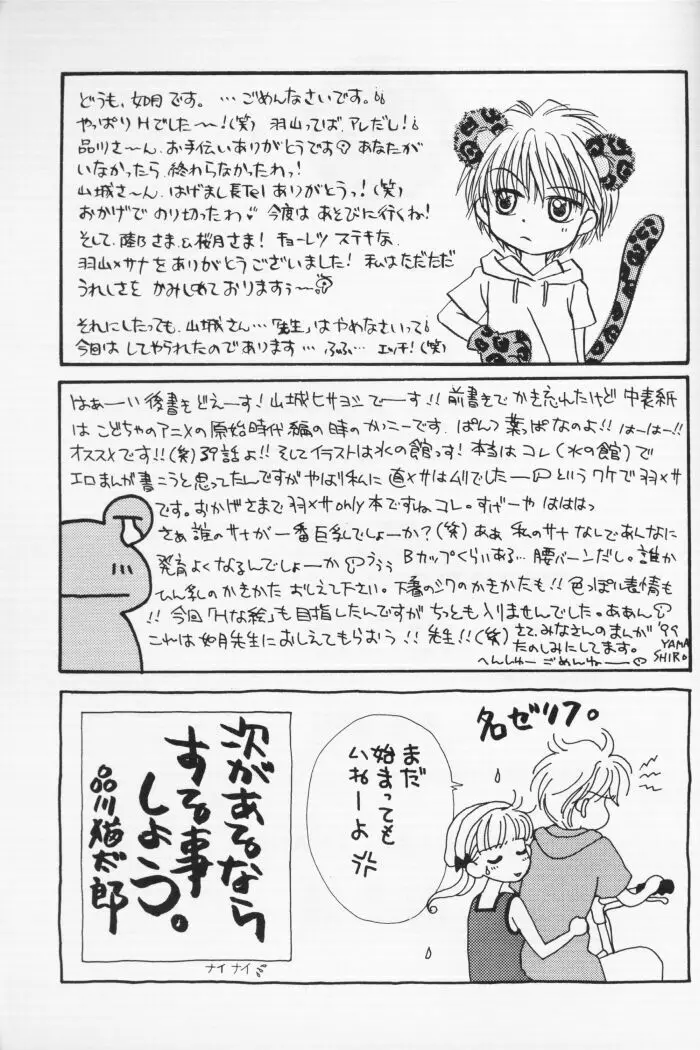 どうも、如月です。…ごめんなさいです。
やっぱりHでした〜!(笑) 羽山ってば、アレだし!
品川さ〜ん、お手伝いありがとうです♡ あなたが
いなかったら、終わらなかったわっ!
山城さ〜ん、はげまし長Telありがとうっ!(笑)
おかげで のり切ったわ 今度は あそびに行くね!
そして、陸乃さま、&桜月さま! キョーレツ ステキな、
羽山×サナをありがとうございました! 私はただただ
うれしさを かみしめておりますぅ〜
それにしたっても、山城さん…「先生」はやめなさいって
今回は してやられたのであります… ふふふ… エッチ!(笑)
はぁーい 後書をどえーす! 山城ヒサヨシでーす!! 前書きでかき忘れたけど 中表紙
は こどちゃのアニメの原始時代編の時のかっこーです。ぱんつ葉っぱなのよ!! はーはー!!
オススメです!!(笑) 39話よ!! そしてイラストは氷の館っす! 本当はコレ(氷の館)で
エロまんが書こうと思ってたんですがやはり私に 直×サはムリでしたー というワケで羽×サ
です。おかげさまで羽×サonly本ですねコレ。すげーや はははっ
さぁ 誰のサナが一番巨乳でしょーか?(笑) ああ 私のサナ なしであんなに
発育よくなるんでしょーか うぅぅ Bカップくらいある… 腰バーンだし。誰か
ひん乳のかきかた おしえて下さい。下着のシワのかきかたも!! 色っぽい表情も
!! 今回「Hな絵」も目指したんですがちっとも入りませんでした。ああん
これは如月先生におしえてもらおう!! 先生!!(笑) さて、みなさんのまんが
たのしみにしてます。
へんしゅー ごめんねー
'99
YAMA
SHIRO
名ゼリフ。
まだ
始まっても
いねーよ
次があるなら
すて事
しょう。
品川猫太郎
ナイナイ